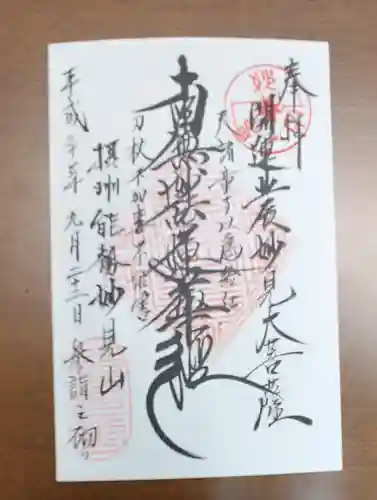 奉拝
開運北辰妙見大菩薩
天諸童子以為給使
南無妙法蓮華経
刀杖不加毒不能害
摂州能勢妙見山
平成二十年九月二十二日 参詣之砌